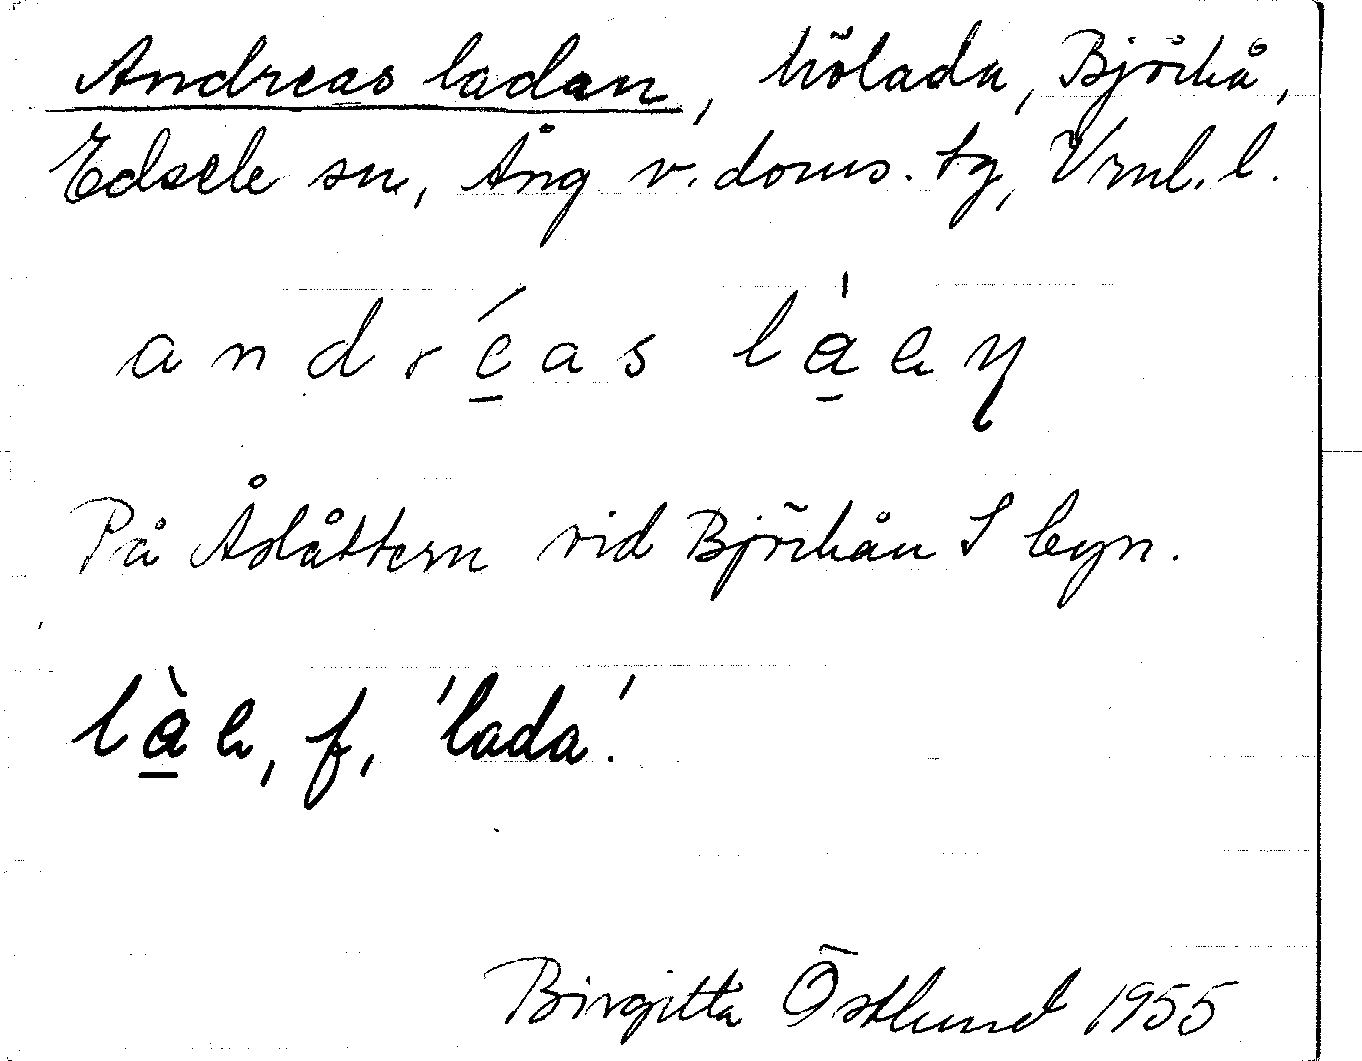 Andreas ladan, hölada, Björkå,
Edsele sn, Ång v. doms. tg, Vrnl. l.
andréas làen
På Åslåttern vid Björkån S byn.
làe, f, 'lada'.
Birgitta Östlund 1955